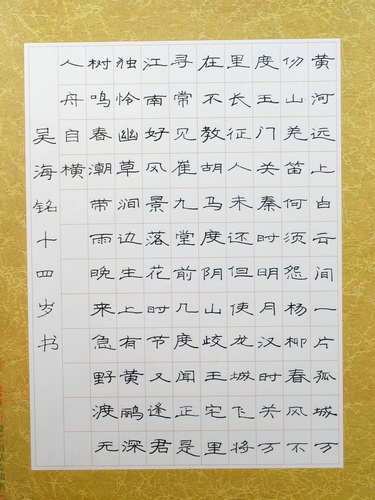 黄河远上白云间一片孤城万
仞山羌笛何须怨杨柳春风不
度玉门关秦时明月汉时关万
里长征人未还但使龙城飞将
在不教胡马度阴山岐王宅里
寻常见崔九堂前几度闻正是
江南好风景落花时节又逢君
独怜幽草涧边生上有黄鹂深
树鸣春潮带雨晚来急野渡无
人舟自横
吴海铭十四岁书